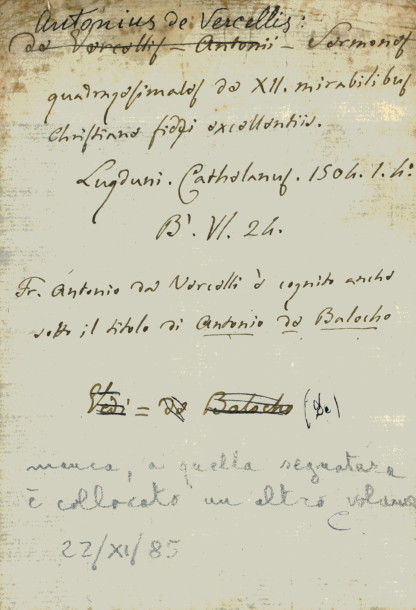 Antonius de Vercellis:
de Vercellis = Antonii - Sermones
quadragesimales de XII. mirabilibus
Christiane fidei excellentiis.
Lugduni. Cathelanus. 1504. 1. 4:
B'. VI. 24.
Fr. Antonio da Vercelli è cognito anche
sotto il titolo di Antonio de Balocho
Vedi = de Balocho (De)
manca, a quella segnatura
è collocato un altro volume
22/XI/85